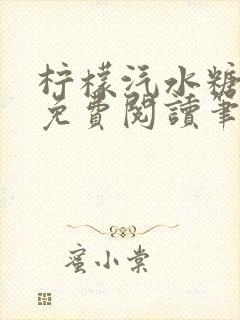 柠檬汽水糖
免費閱讀筆
蜜小棠